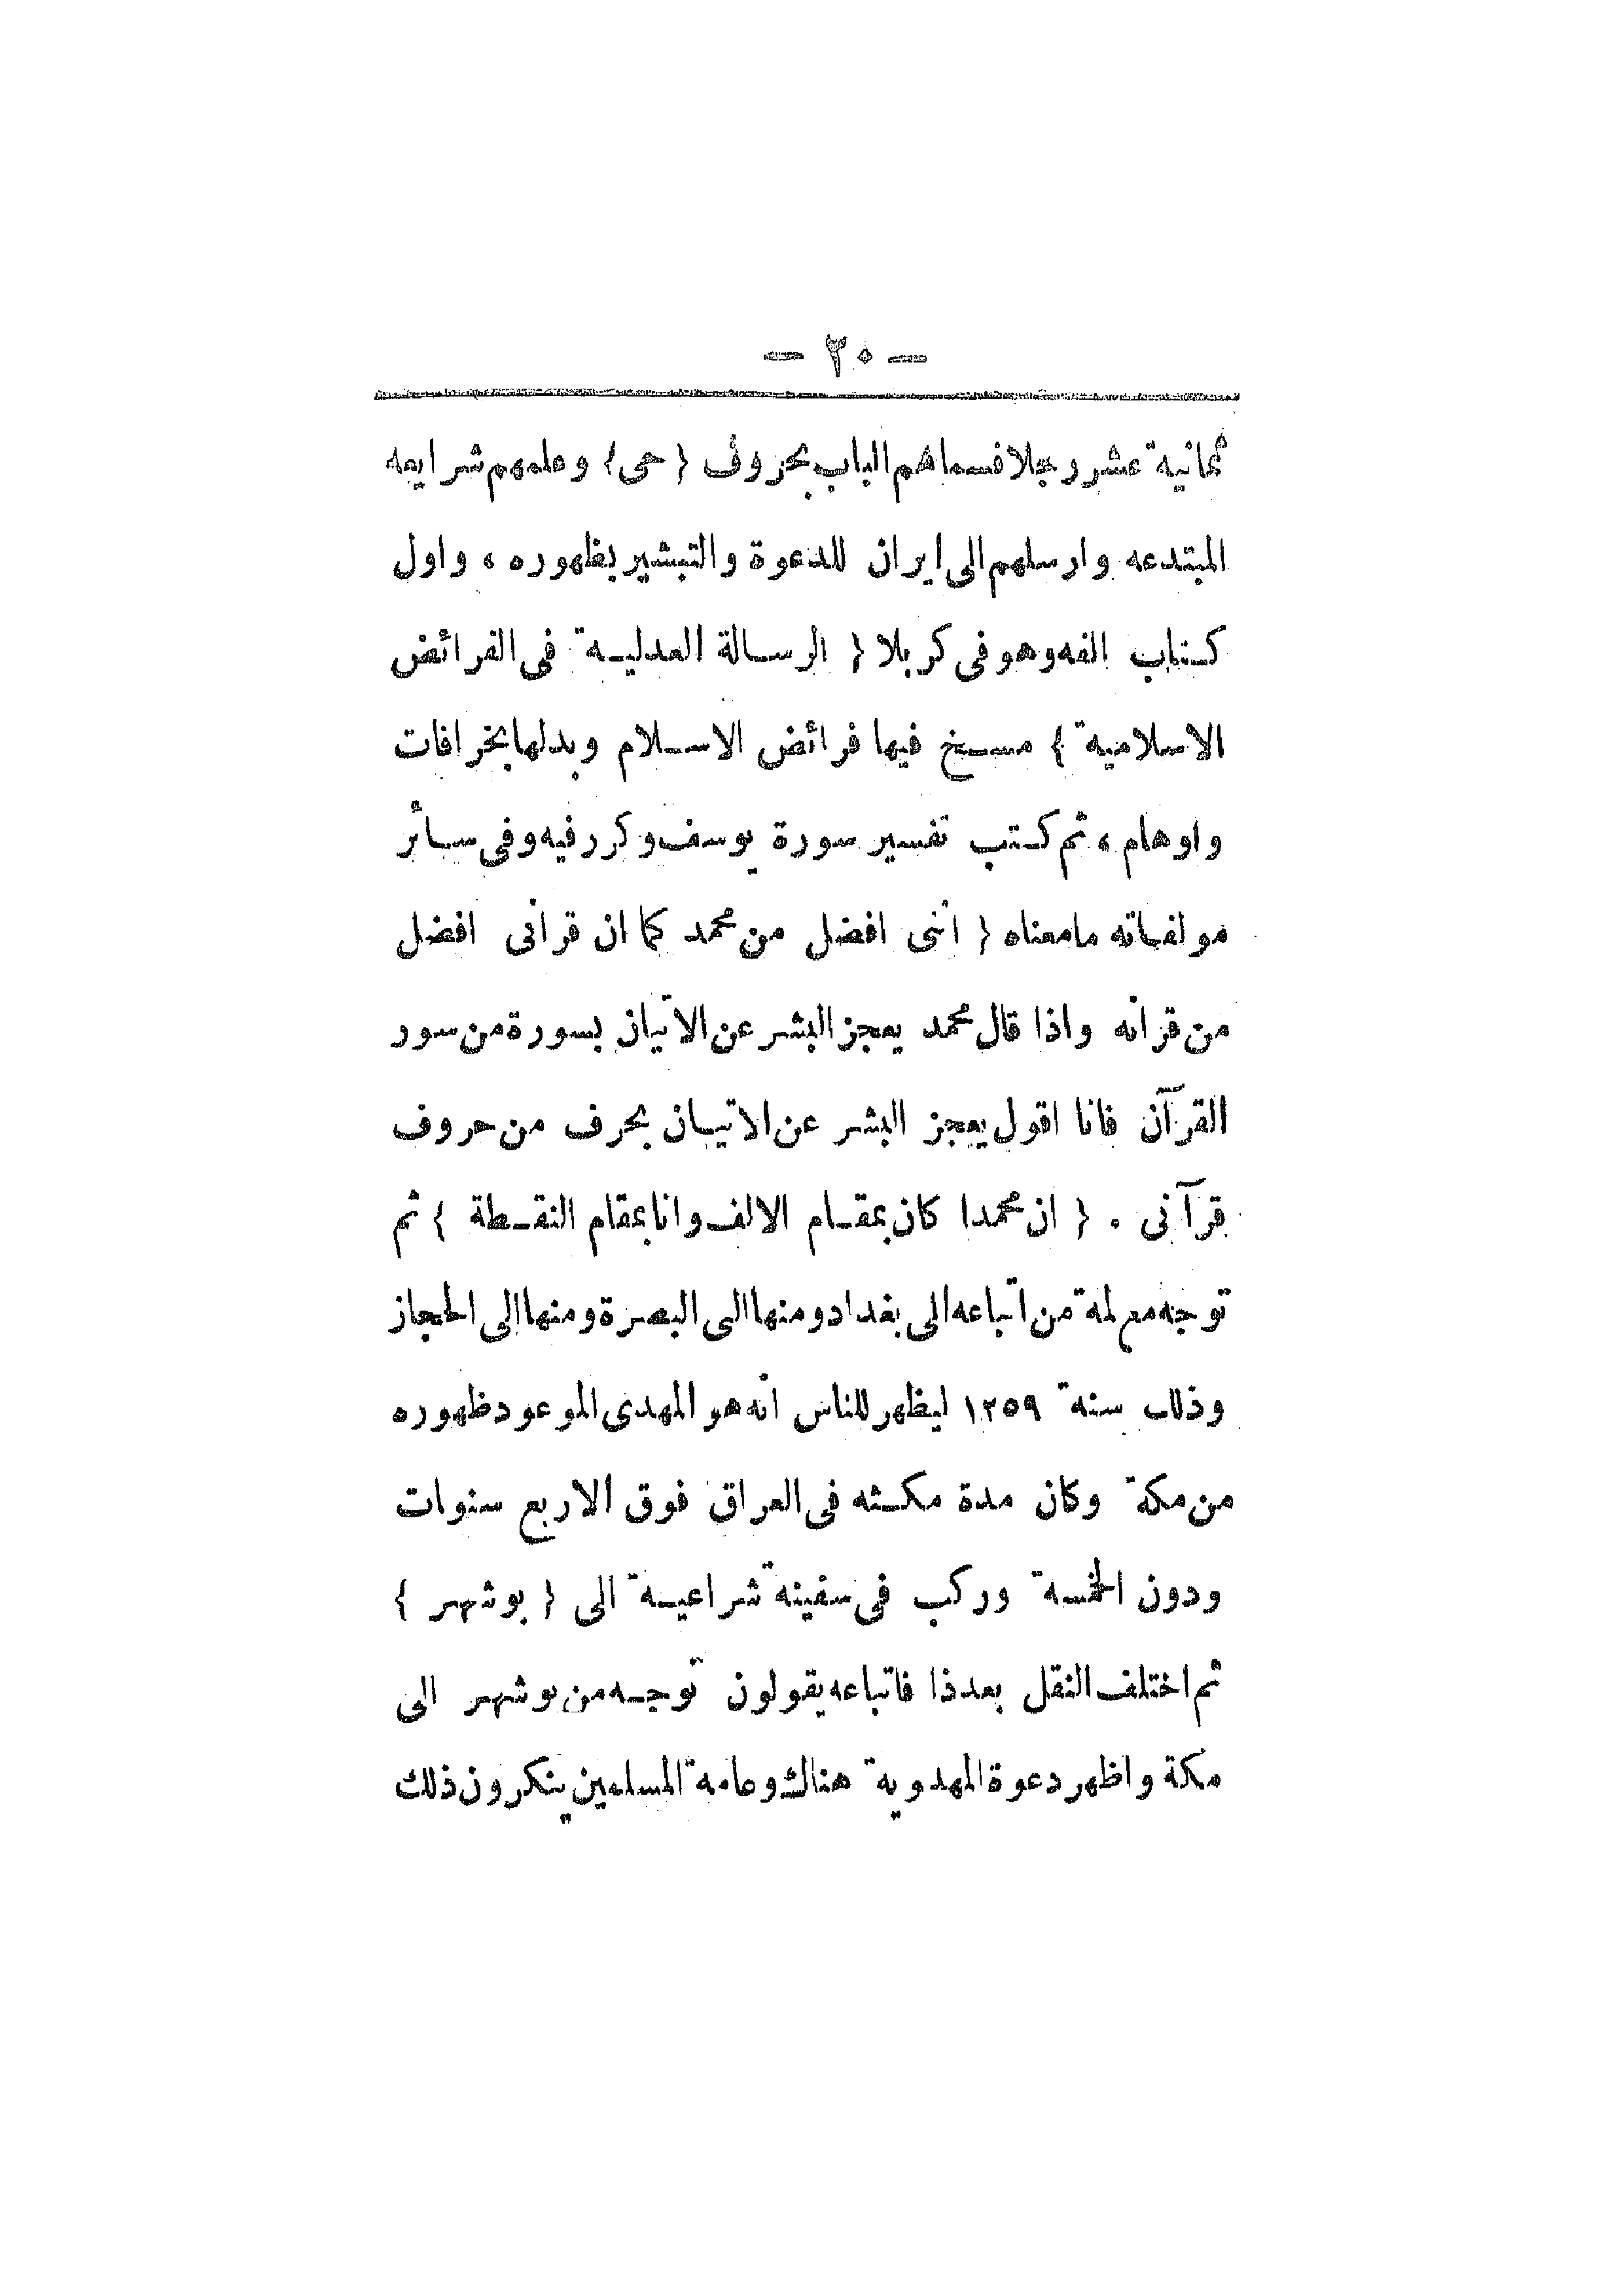 — ٣٠ —
ثمانية عشر رجلا فسماهم الباب بحروف {حى} وعلمهم شرايعه
المبتدعه وارسلهم الى ايران للدعوة والتبشير بظهوره ، واول
كتاب الفه وهو فى كربلا { الرسالة العدلية فى الفرائض
الاسلامية } مسخ فيها فرائض الاسلام وبدلها بخرافات
واوهام ، ثم كتب تفسير سورة يوسف وكرر فيه وفى سائر
مولفاته مامعناه { اننى افضل من محمد كما ان قرانى افضل
من قرانه واذا قال محمد يعجز البشر عن الاتيان بسورة من سور
القرآن فانا اقول يعجز البشر عن الاتيان بحرف من حروف
قرآنى . { ان محمدا كان بمقام الالف وانا بمقام النقطة } ثم
توجه مع لمة من اتباعه الى بغداد ومنها الى البصرة ومنها الى الحجاز
وذلك سنة ١٢٥٩ ليظهر للناس انه هو المهدى الموعود ظهوره
من مكة وكان مدة مكثه فى العراق فوق الاربع سنوات
ودون الخمسة وركب فى سفينة شراعية الى { بوشهر }
ثم اختلف النقل بعد ذا فاتباعه يقولون توجه من بوشهر الى
مكة واظهر دعوة المهدوية هناك وعامة المسلمين ينكرون ذلك